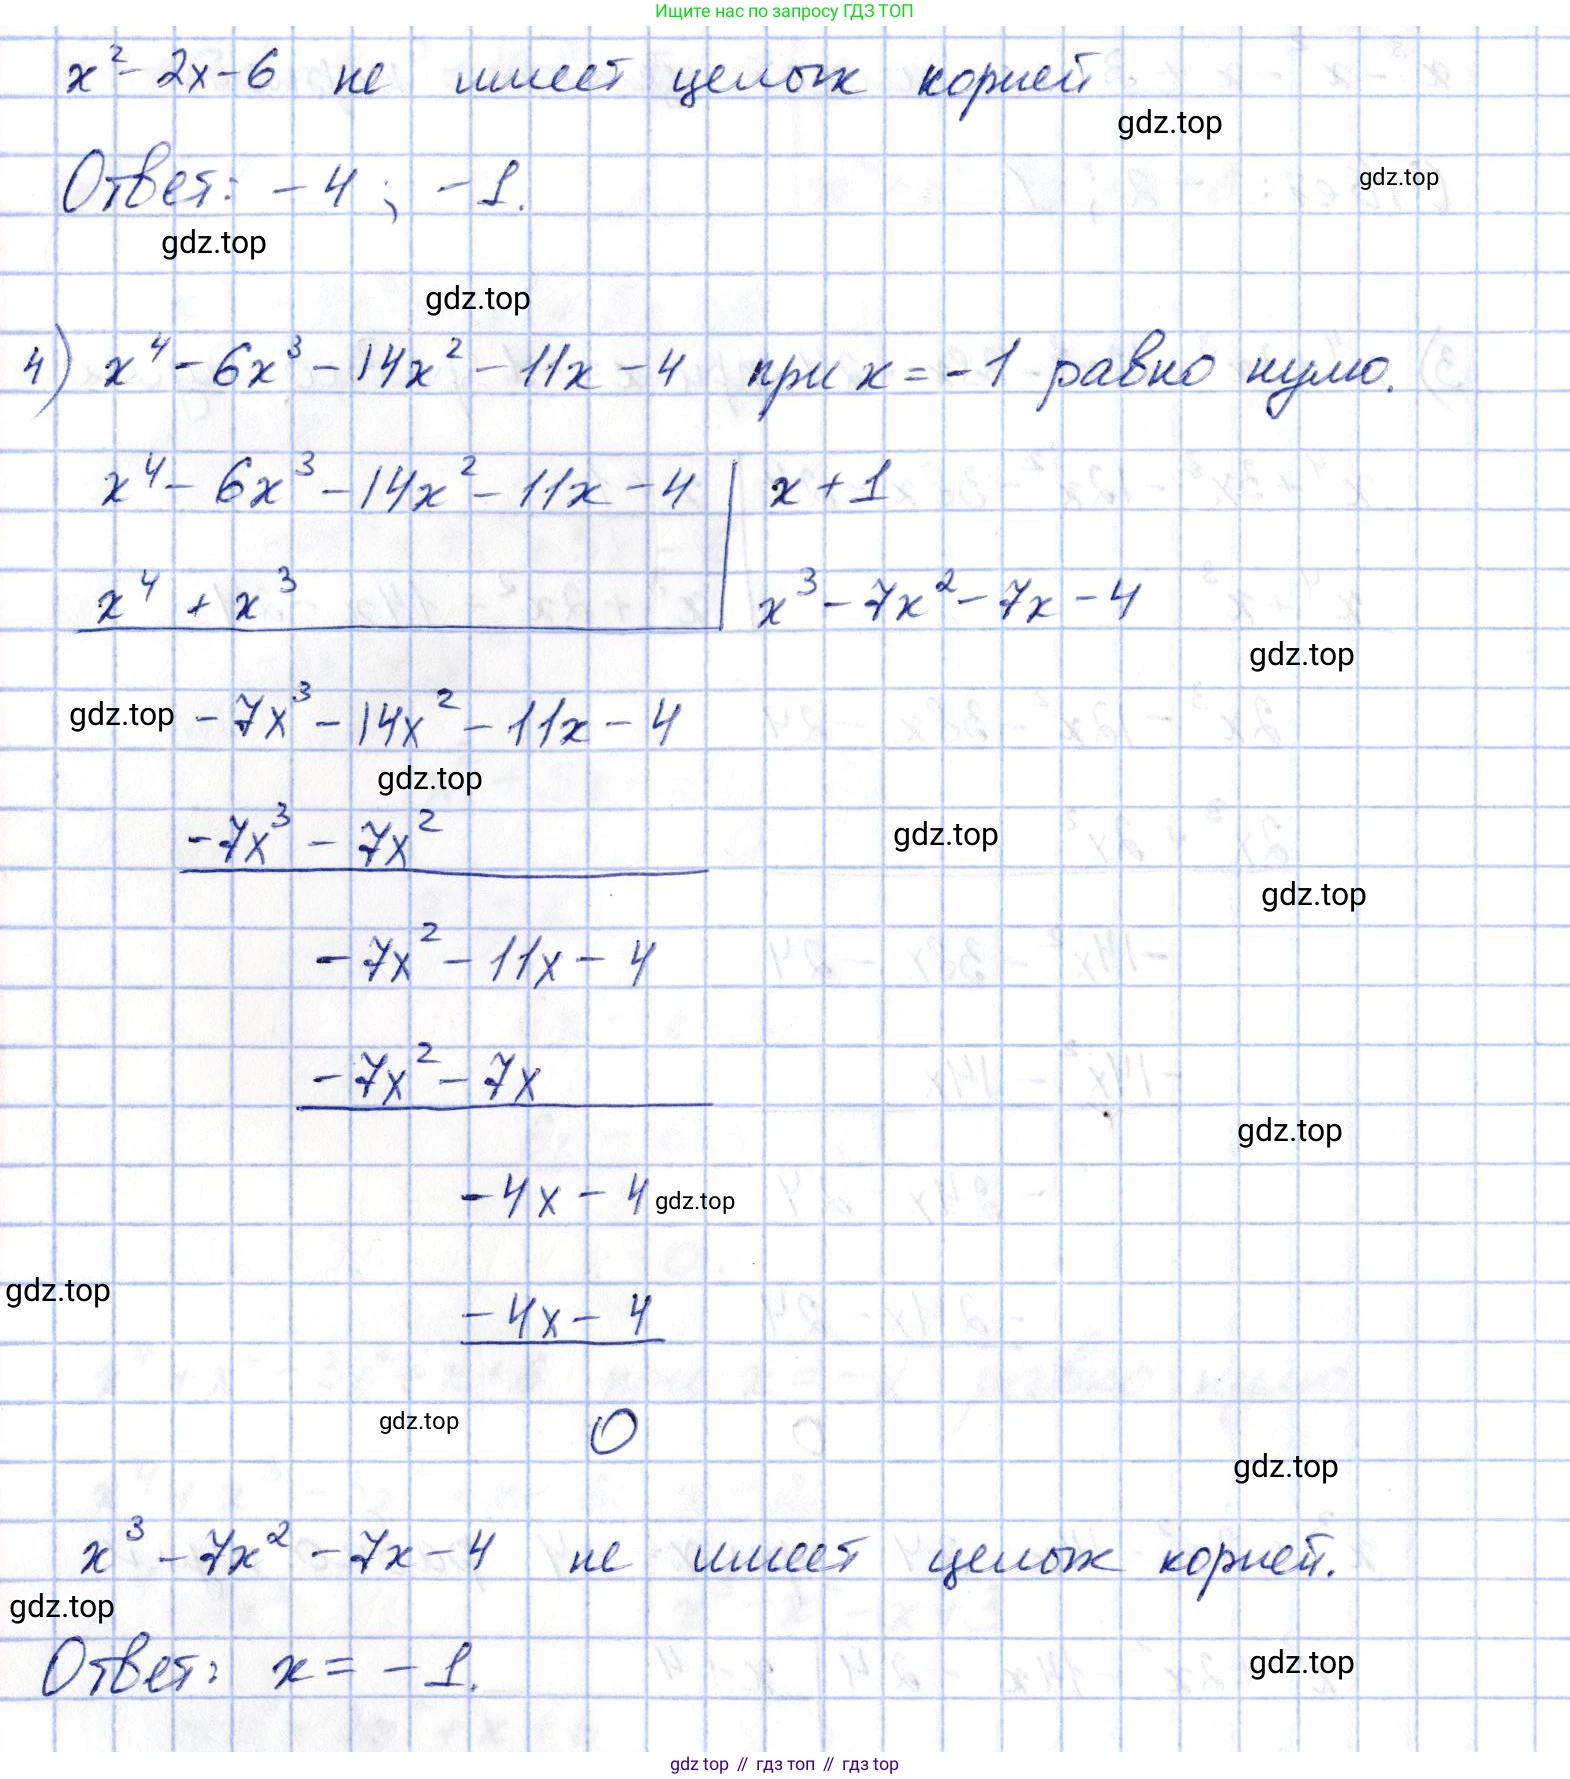 Ищите нас по запросу ГДЗ ТОП
x² - 2x - 6 не имеет целых корней
gdz.top
Ответ: -4; -1.
gdz.top
gdz.top
gdz.top
4) x⁴ - 6x³ - 14x² - 11x - 4 при x = -1 равно нулю.
x⁴ - 6x³ - 14x² - 11x - 4 | x + 1
x⁴ + x³ | x³ - 7x² - 7x - 4
gdz.top
gdz.top - 7x³ - 14x² - 11x - 4
gdz.top
- 7x³ - 7x²
gdz.top
gdz.top
- 7x² - 11x - 4
- 7x² - 7x
gdz.top
- 4x - 4 gdz.top
gdz.top
- 4x - 4
gdz.top 0
gdz.top
x³ - 7x² - 7x - 4 не имеет целых корней.
gdz.top
Ответ: x = -1.
gdz.top
gdz top // гдз топ // gdz top